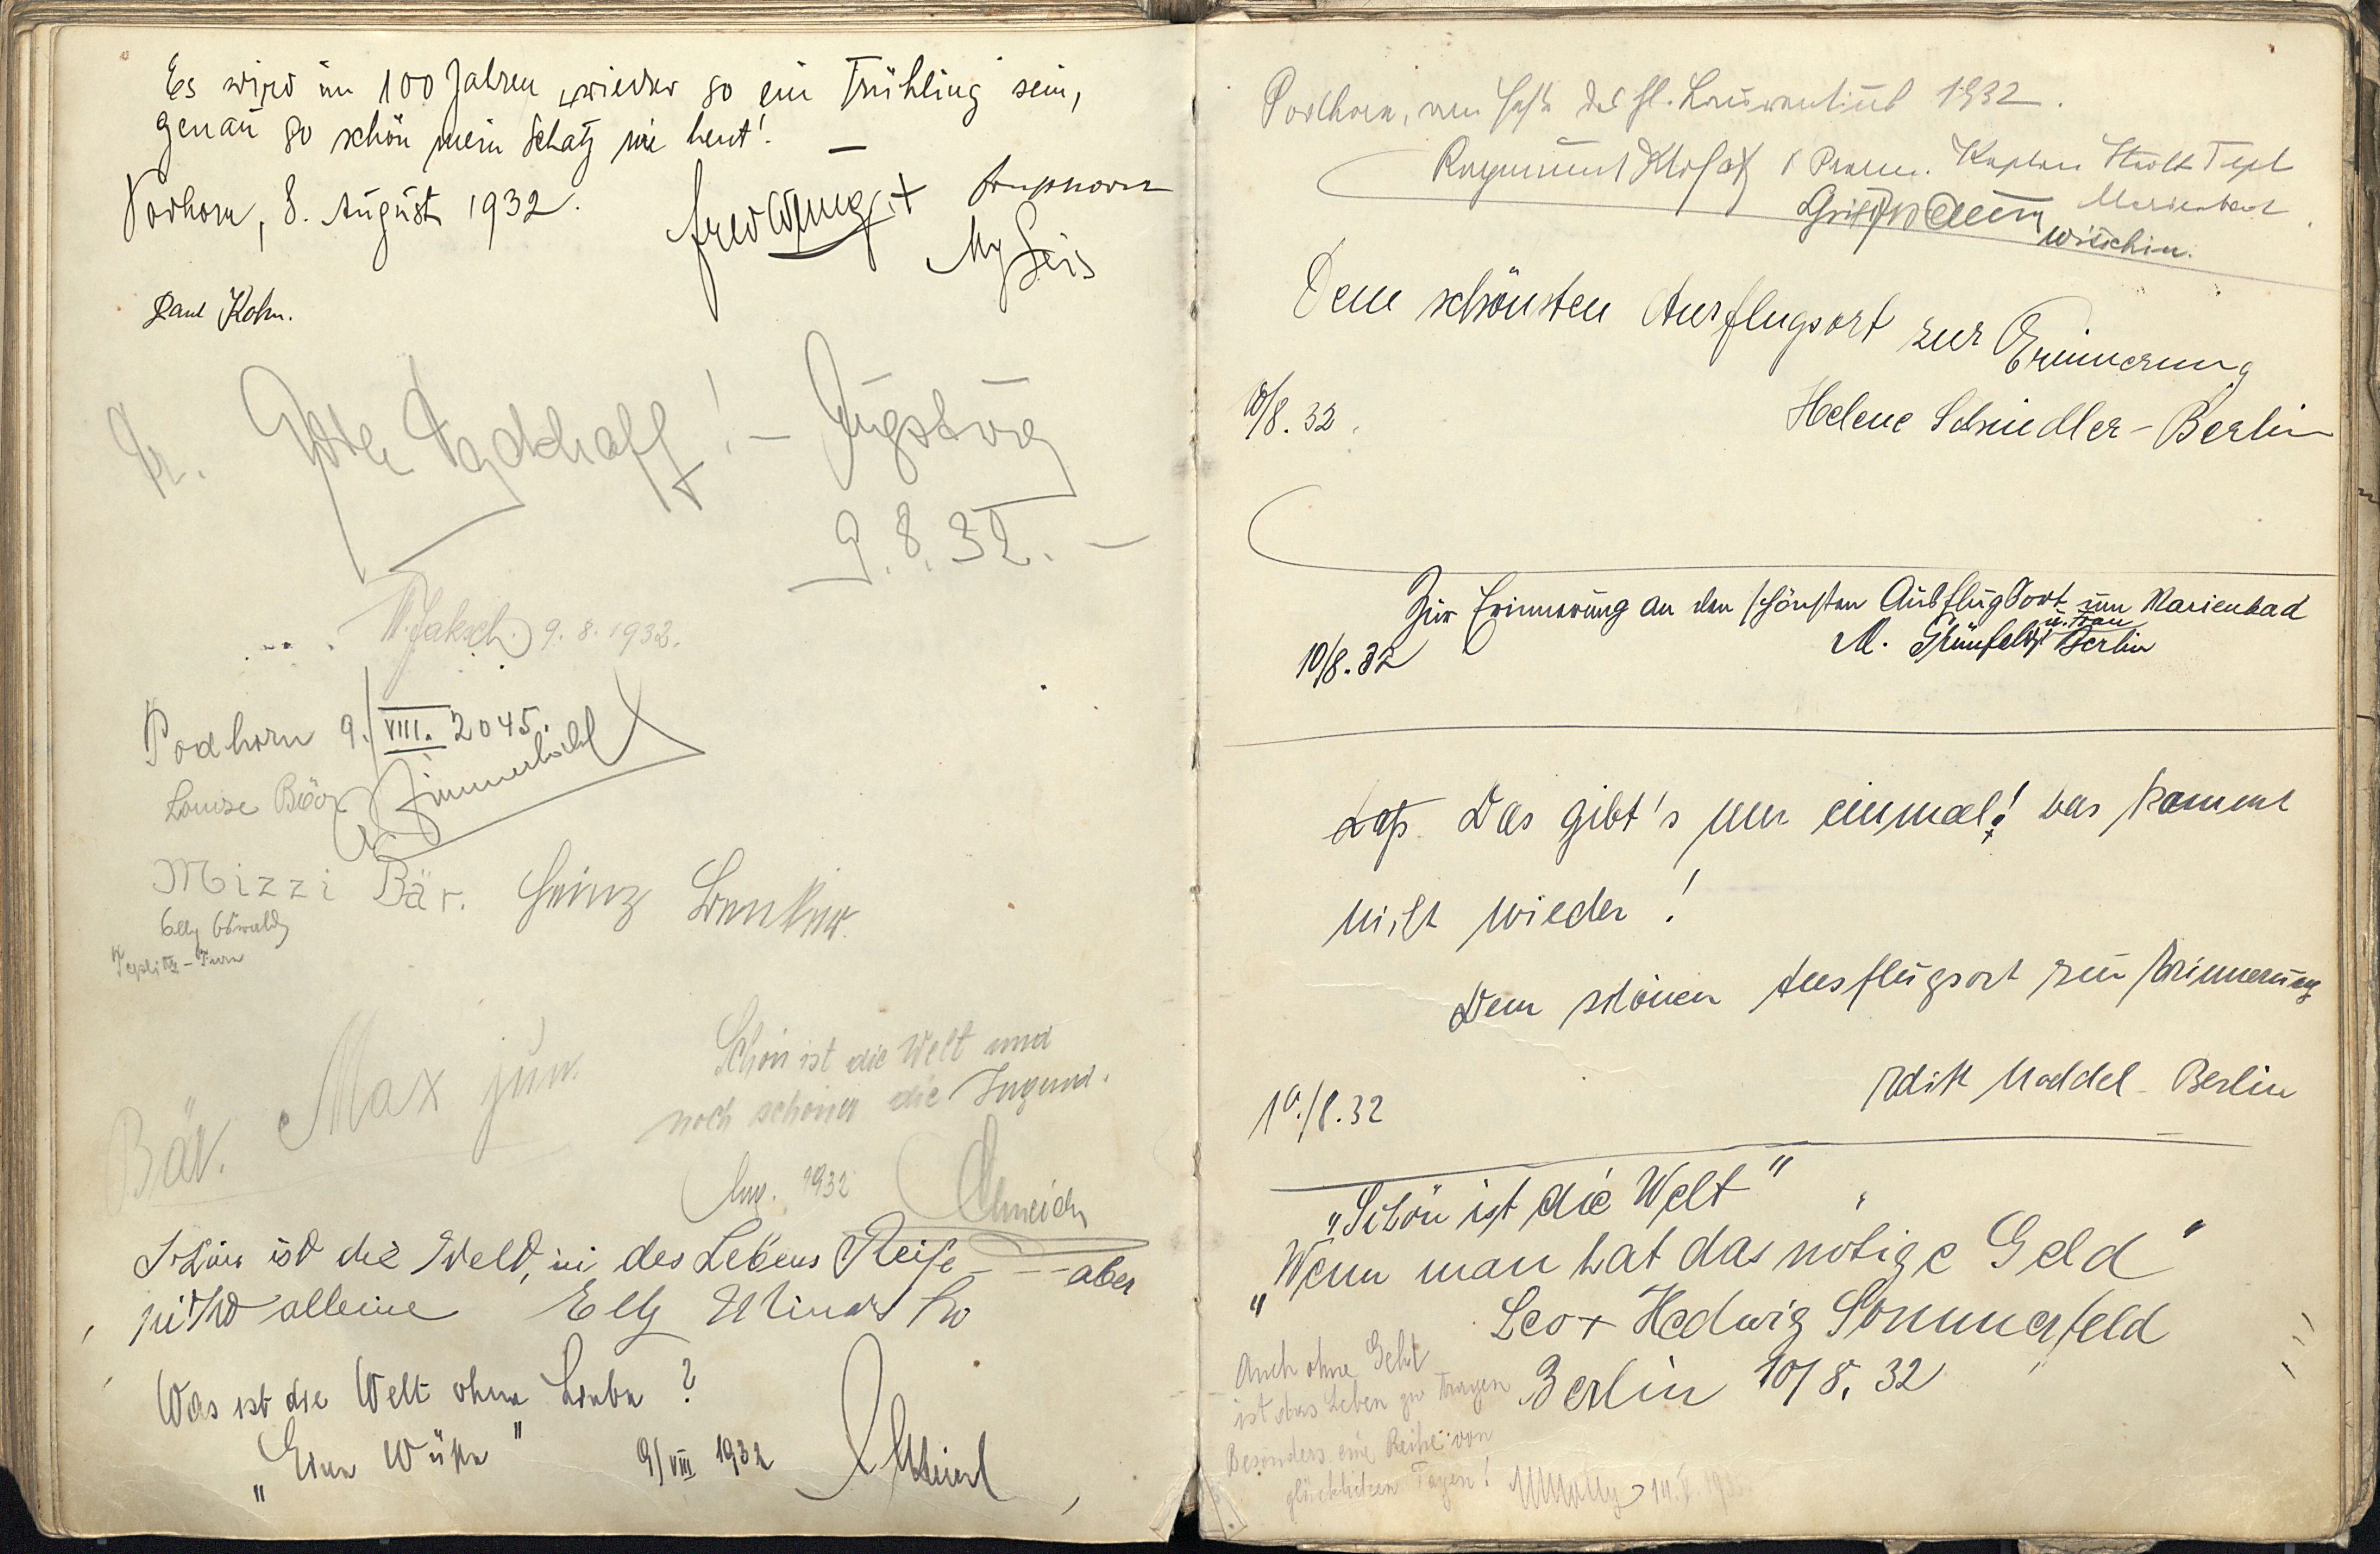 Es wird in 100 Jahren wieder so ein Frühling sein,
genau so schön mein Schatz wie heut!
Podhorn, 8. August 1932.
Paul Kohn.
Augsburg
9.8.32.
Jaksch. 9.8.1932.
Podhorn 9./VIII. 2045.
Louise Bär
Mizzi Bär. Heinz
Elly
Teplitz-Turn
Bär. Max jun.
Schön ist die Welt und
noch schöner die Jugend.
Aug. 1932
Schön ist die Welt, in des Lebens Reise --- aber
nicht alleine Elly
Was ist die Welt ohne Liebe?
"Eine Wüste" 9/VIII 1932
Podhorn, am Feste des hl. Laurentius 1932.
Kaplan Stadt Tepl
Marienbad
Witschin.
Dem schönsten Ausflugsort zur Erinnerung
10/8.32. Helene Schindler - Berlin
Zur Erinnerung an den schönsten Ausflugsort um Marienbad
10/8.32 M. Grünfeld u. Frau Berlin
Das gibt's nur einmal! das kommt
nicht wieder!
Dem schönen Ausflugsort zur Erinnerung
Edith Berlin
10./8.32
"Schön ist die Welt"
"Wenn man hat das nötige Geld"
Leo + Hedwig Sommerfeld
Berlin 10/8.32
Auch ohne Geld
ist das Leben zu tragen
Besonders eine Reihe von
glücklichen Tagen!